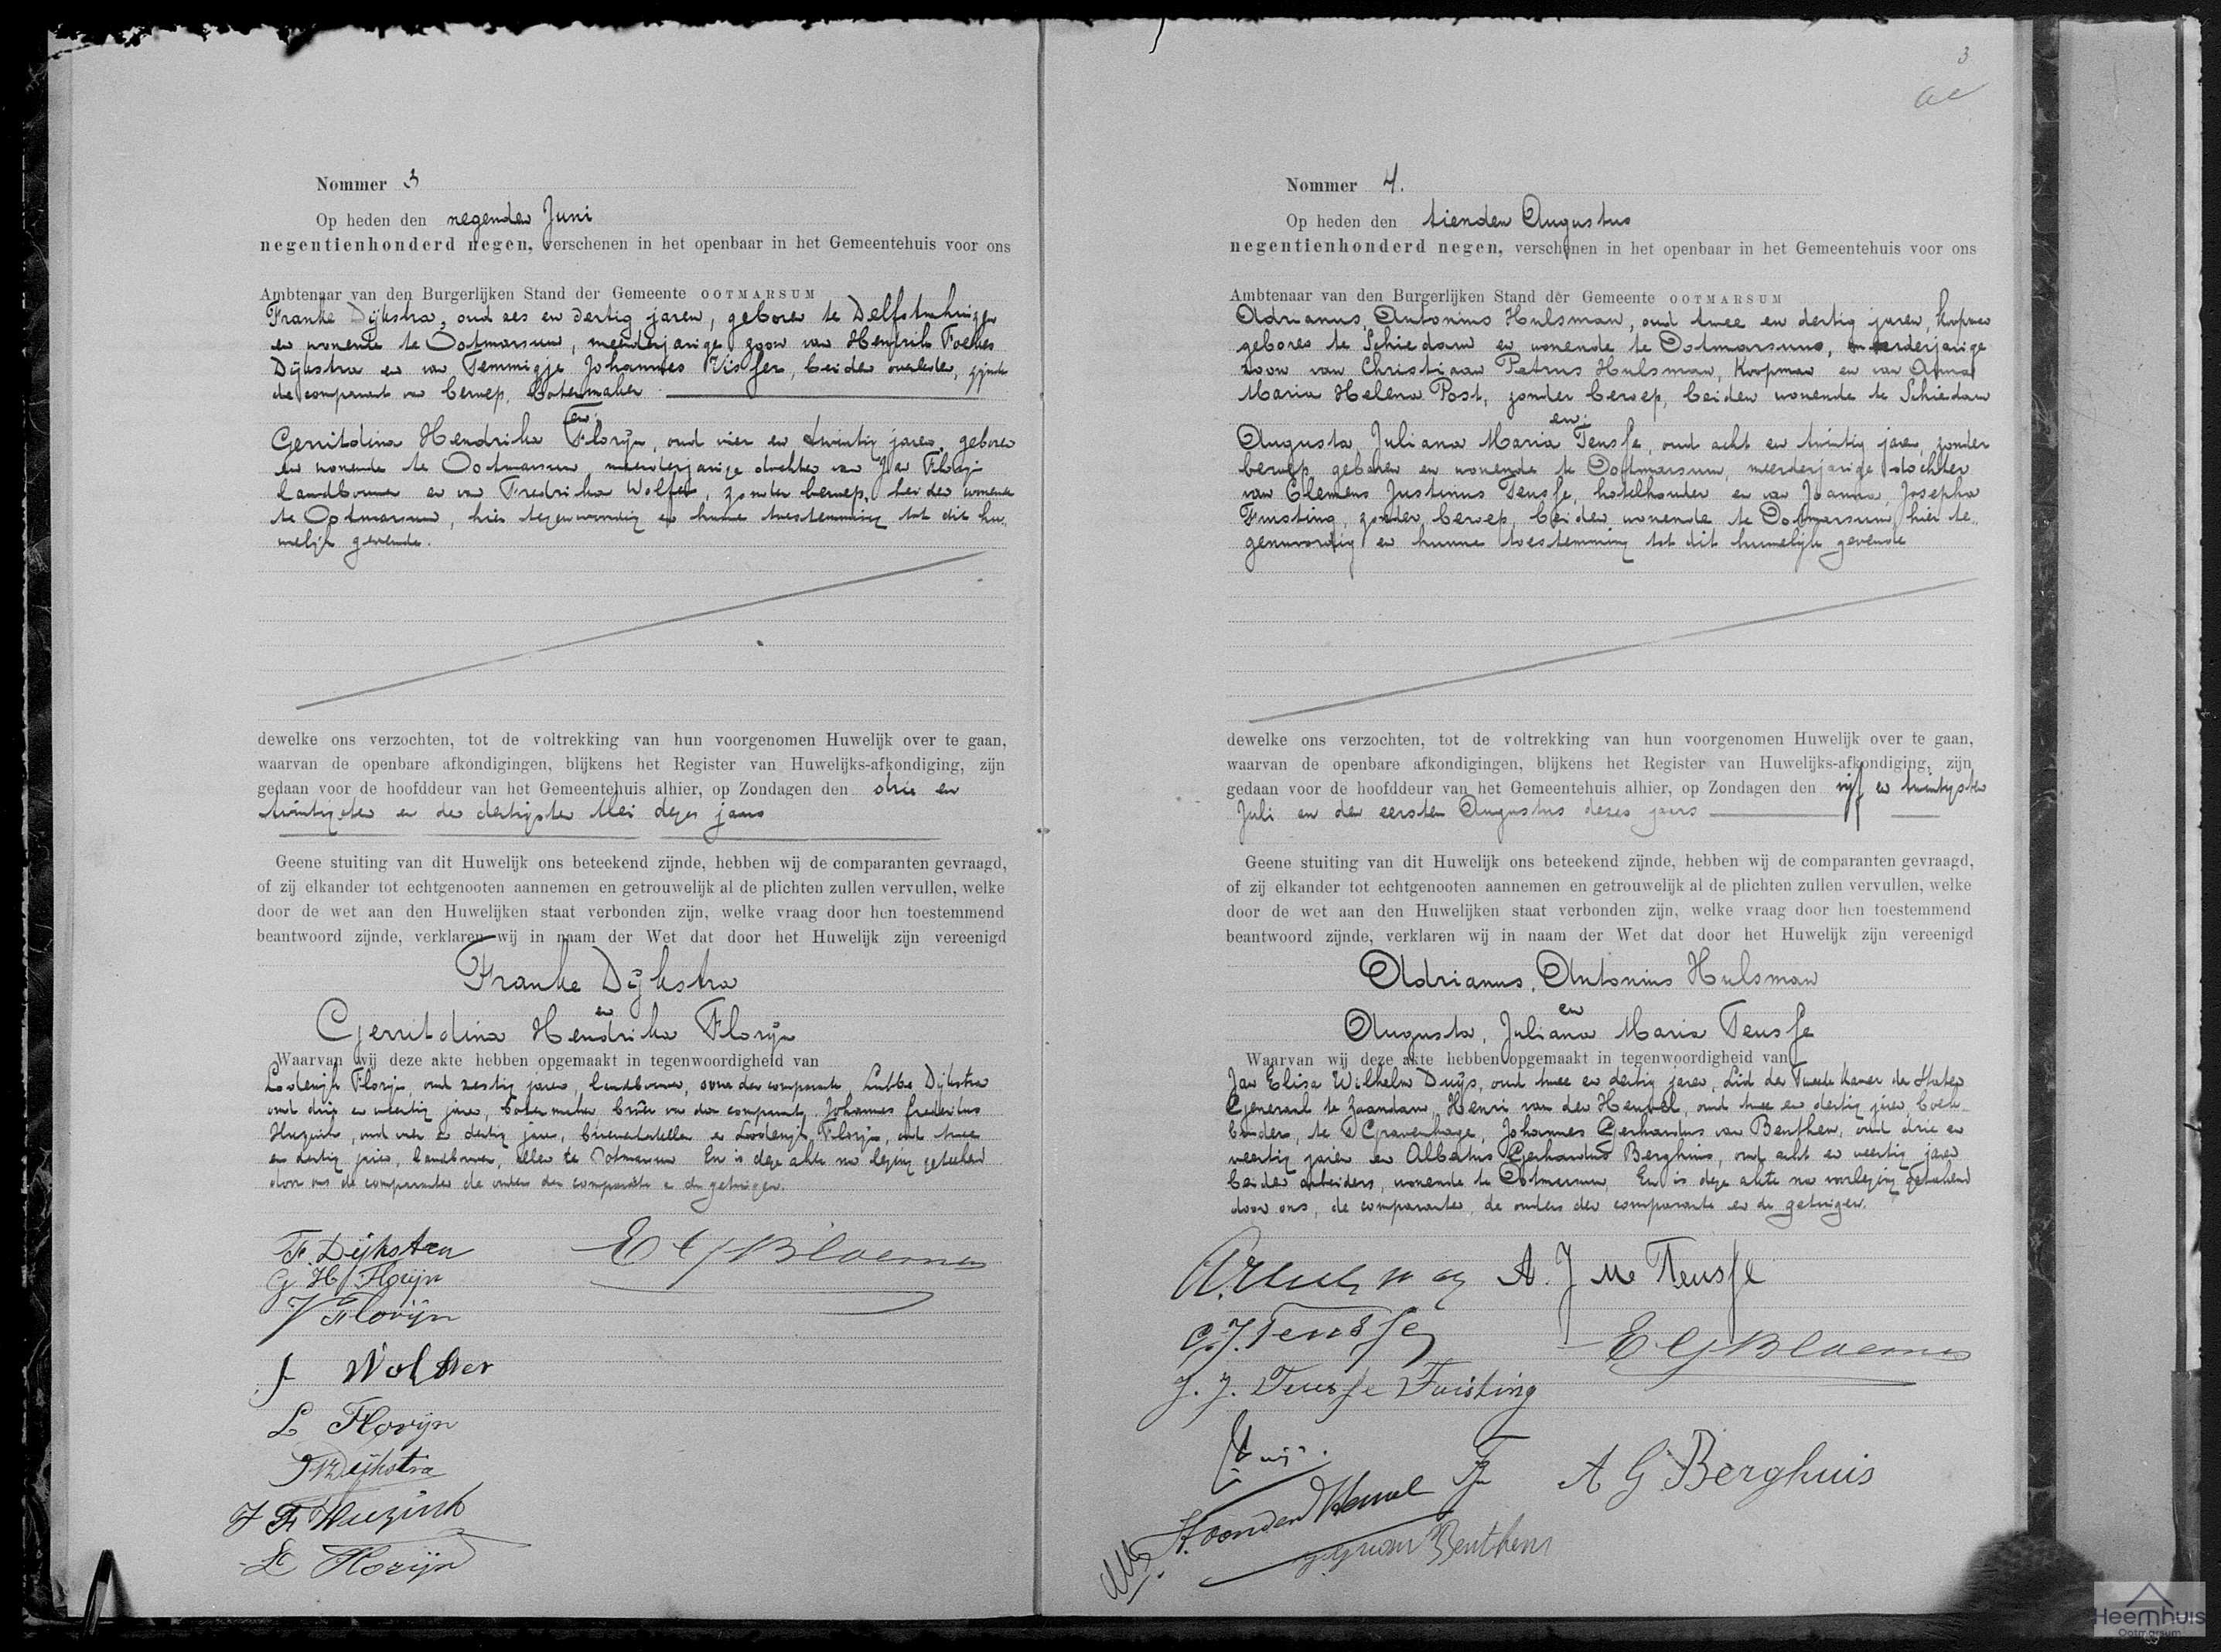 Nommer 3
Op heden den negenden Juni
negentienhonderd negen, verschenen in het openbaar in het Gemeentehuis voor ons
Ambtenaar van den Burgerlijken Stand der Gemeente OOTMARSUM
Franke Dijkstra, oud zes en dertig jaren, geboren te Delfstrahuizen
en wonende te Ootmarsum, meerderjarige zoon van Hendrik Foekes
Dijkstra en van Temmigje Johannes Visser, beiden overleden, zijnde
de comparant van beroep, botermaker
en:
Gerritdina Hendrika Florijn, oud vier en twintig jaren, geboren
en wonende te Ootmarsum, meerderjarige dochter van Jan Florijn
landbouwer en van Fredrika Wolfer, zonder beroep, beiden wonende
te Ootmarsum, hier tegenwoordig en hunne toestemming tot dit hu-
welijk gevende.
dewelke ons verzochten, tot de voltrekking van hun voorgenomen Huwelijk over te gaan,
waarvan de openbare afkondigingen, blijkens het Register van Huwelijks-afkondiging, zijn
gedaan voor de hoofddeur van het Gemeentehuis alhier, op Zondagen den drie en
twintigsten en den dertigsten Mei dezes jaars
Geene stuiting van dit Huwelijk ons beteekend zijnde, hebben wij de comparanten gevraagd,
of zij elkander tot echtgenooten aannemen en getrouwelijk al de plichten zullen vervullen, welke
door de wet aan den Huwelijken staat verbonden zijn, welke vraag door hen toestemmend
beantwoord zijnde, verklaren wij in naam der Wet dat door het Huwelijk zijn vereenigd
Franke Dijkstra
en
Gerritdina Hendrika Florijn
Waarvan wij deze akte hebben opgemaakt in tegenwoordigheid van
Lodewijk Florijn, oud zestig jaren, landbouwer, oom der comparante, Lubbe Dijkstra
oud drie en veertig jaren, botermaker broer van den comparant, Johannes Frederikus
Huzink, oud vier en dertig jaren, brievenbesteller en Lodewijk Florijn, oud twee
en dertig jaren, landbouwer, allen te Ootmarsum En is deze akte na lezing geteekend
door ons de comparanten de ouders der comparante en de getuigen.
F. Dijkstra
E G Bloemen
G H Florijn
J Florijn
f Wolfer
L Florijn
Dijkstra
J F Huzink
L Florijn
3
Nommer 4.
Op heden den tienden Augustus
negentienhonderd negen, verschenen in het openbaar in het Gemeentehuis voor ons
Ambtenaar van den Burgerlijken Stand der Gemeente OOTMARSUM
Adrianus, Antonius Hulsman, oud twee en dertig jaren, koopman
geboren te Schiedam en wonende te Ootmarsum, meerderjarige
zoon van Christiaan Petrus Hulsman, Koopman en van Anna
Maria Helena Post, zonder beroep, beiden wonende te Schiedam
en:
Augusta, Juliana Maria Teusse, oud acht en twintig jaren, zonder
beroep, geboren en wonende te Ootmarsum, meerderjarige dochter
van Clemens Justinus Teusse, hotelhouder en van Joanna, Josepha
Fuisting, zonder beroep, beiden wonende te Ootmarsum, hier te-
genwoordig en hunne toestemming tot dit huwelijk gevende
dewelke ons verzochten, tot de voltrekking van hun voorgenomen Huwelijk over te gaan,
waarvan de openbare afkondigingen, blijkens het Register van Huwelijks-afkondiging, zijn
gedaan voor de hoofddeur van het Gemeentehuis alhier, op Zondagen den vijf en twintigsten
Juli en den eersten Augustus dezes jaars
Geene stuiting van dit Huwelijk ons beteekend zijnde, hebben wij de comparanten gevraagd,
of zij elkander tot echtgenooten aannemen en getrouwelijk al de plichten zullen vervullen, welke
door de wet aan den Huwelijken staat verbonden zijn, welke vraag door hen toestemmend
beantwoord zijnde, verklaren wij in naam der Wet dat door het Huwelijk zijn vereenigd
Adrianus, Antonius Hulsman
en
Augusta, Juliana Maria Teusse
Waarvan wij deze akte hebben opgemaakt in tegenwoordigheid van
Jan Elisa Wilhelm Duijs, oud twee en dertig jaren, Lid der Tweede Kamer der Staten
Generaal te Zaandam, Henri van den Heuvel, oud twee en dertig jaren, boek-
binder, te 's Gravenhage, Johannes Gerhardus van Benthem, oud drie en
veertig jaren en Albertus Gerhardus Berghuis, oud acht en veertig jaren
beiden arbeiders, wonende te Ootmarsum, En is deze akte na voorlezing geteekend
door ons, de comparanten, de ouders der comparante en de getuigen.
A. J M Teusse
C. J. Teusse
E G Bloemen
J. J. Teusse Fuisting
A G Berghuis
H. van den Heuvel
van Benthem
Heemhuis
Ootmarsum